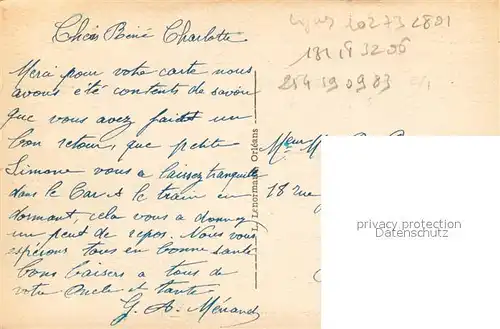 Chers René Charlotte
Merci pour votre carte nous
avons été contents de savoir
que vous avez fait un
bon retour, que petite
Simone vous a laissez tranquille
dans le Car & le train en
dormant, cela vous a donnez
un peut de repos. Nous vous
espérons tous en bonne santé
bons baisers a tous de
votre Oncle et tante
G. A. Ménand
L. Lenormand, Orléans
20273 2801
181 19 32 06
254 390 983
18 rue
privacy protection
Datenschutz